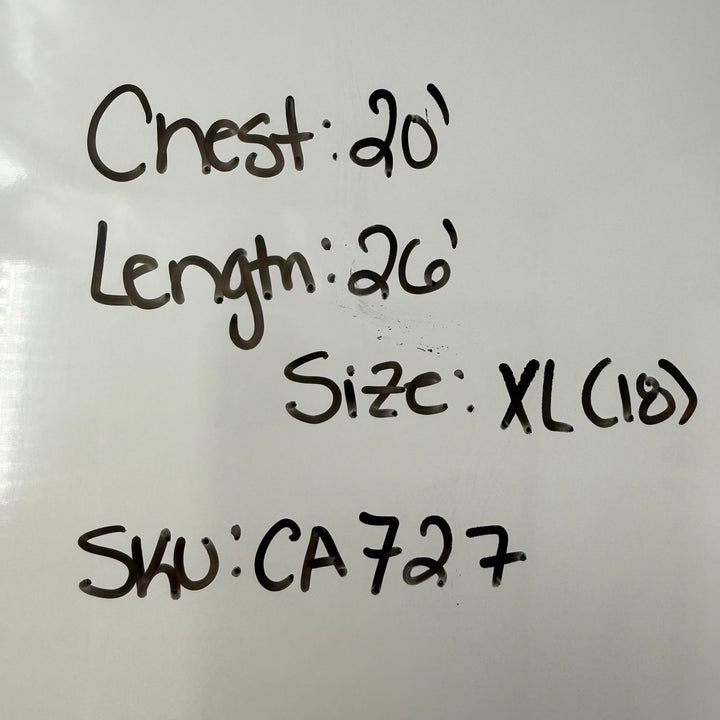 Chest: 20'
Length: 26'
Size: XL (18)
SKU: CA727